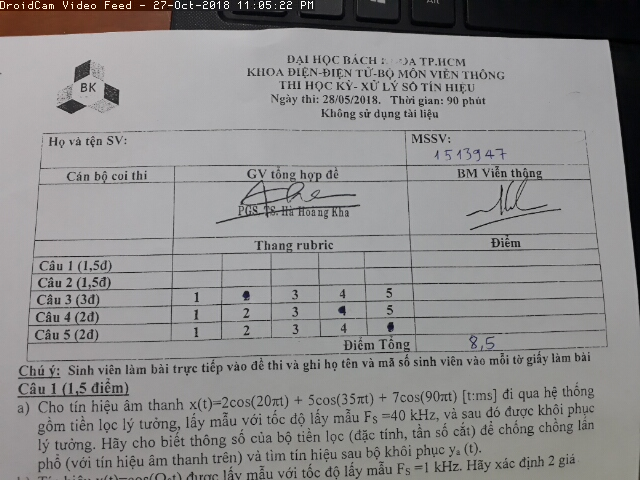 DroidCam Video Feed - 27-Oct-2018 11:05:22 PM
BK
ĐẠI HỌC BÁCH KHOA TP.HCM
KHOA ĐIỆN-ĐIỆN TỬ-BỘ MÔN VIỄN THÔNG
THI HỌC KỲ- XỬ LÝ SỐ TÍN HIỆU
Ngày thi: 28/05/2018. Thời gian: 90 phút
Không sử dụng tài liệu
Họ và tên SV: MSSV:
1513947
Cán bộ coi thi GV tổng hợp đề BM Viễn thông
PGS. TS. Hà Hoàng Kha
Thang rubric Điểm
Câu 1 (1,5đ)
Câu 2 (1,5đ)
Câu 3 (3đ) 1 3 4 5
Câu 4 (2đ) 1 2 3 5
Câu 5 (2đ) 1 2 3 4
Điểm Tổng 8,5
Chú ý: Sinh viên làm bài trực tiếp vào đề thi và ghi họ tên và mã số sinh viên vào mỗi tờ giấy làm bài
Câu 1 (1,5 điểm)
a) Cho tín hiệu âm thanh x(t)=2cos(20πt) + 5cos(35πt) + 7cos(90πt) [t:ms] đi qua hệ thống
gồm tiền lọc lý tưởng, lấy mẫu với tốc độ lấy mẫu FS =40 kHz, và sau đó được khôi phục
lý tưởng. Hãy cho biết thông số của bộ tiền lọc (đặc tính, tần số cắt) để chống chồng lấn
phổ (với tín hiệu âm thanh trên) và tìm tín hiệu sau bộ khôi phục ya (t).
được lấy mẫu với tốc độ lấy mẫu FS =1 kHz. Hãy xác định 2 giá